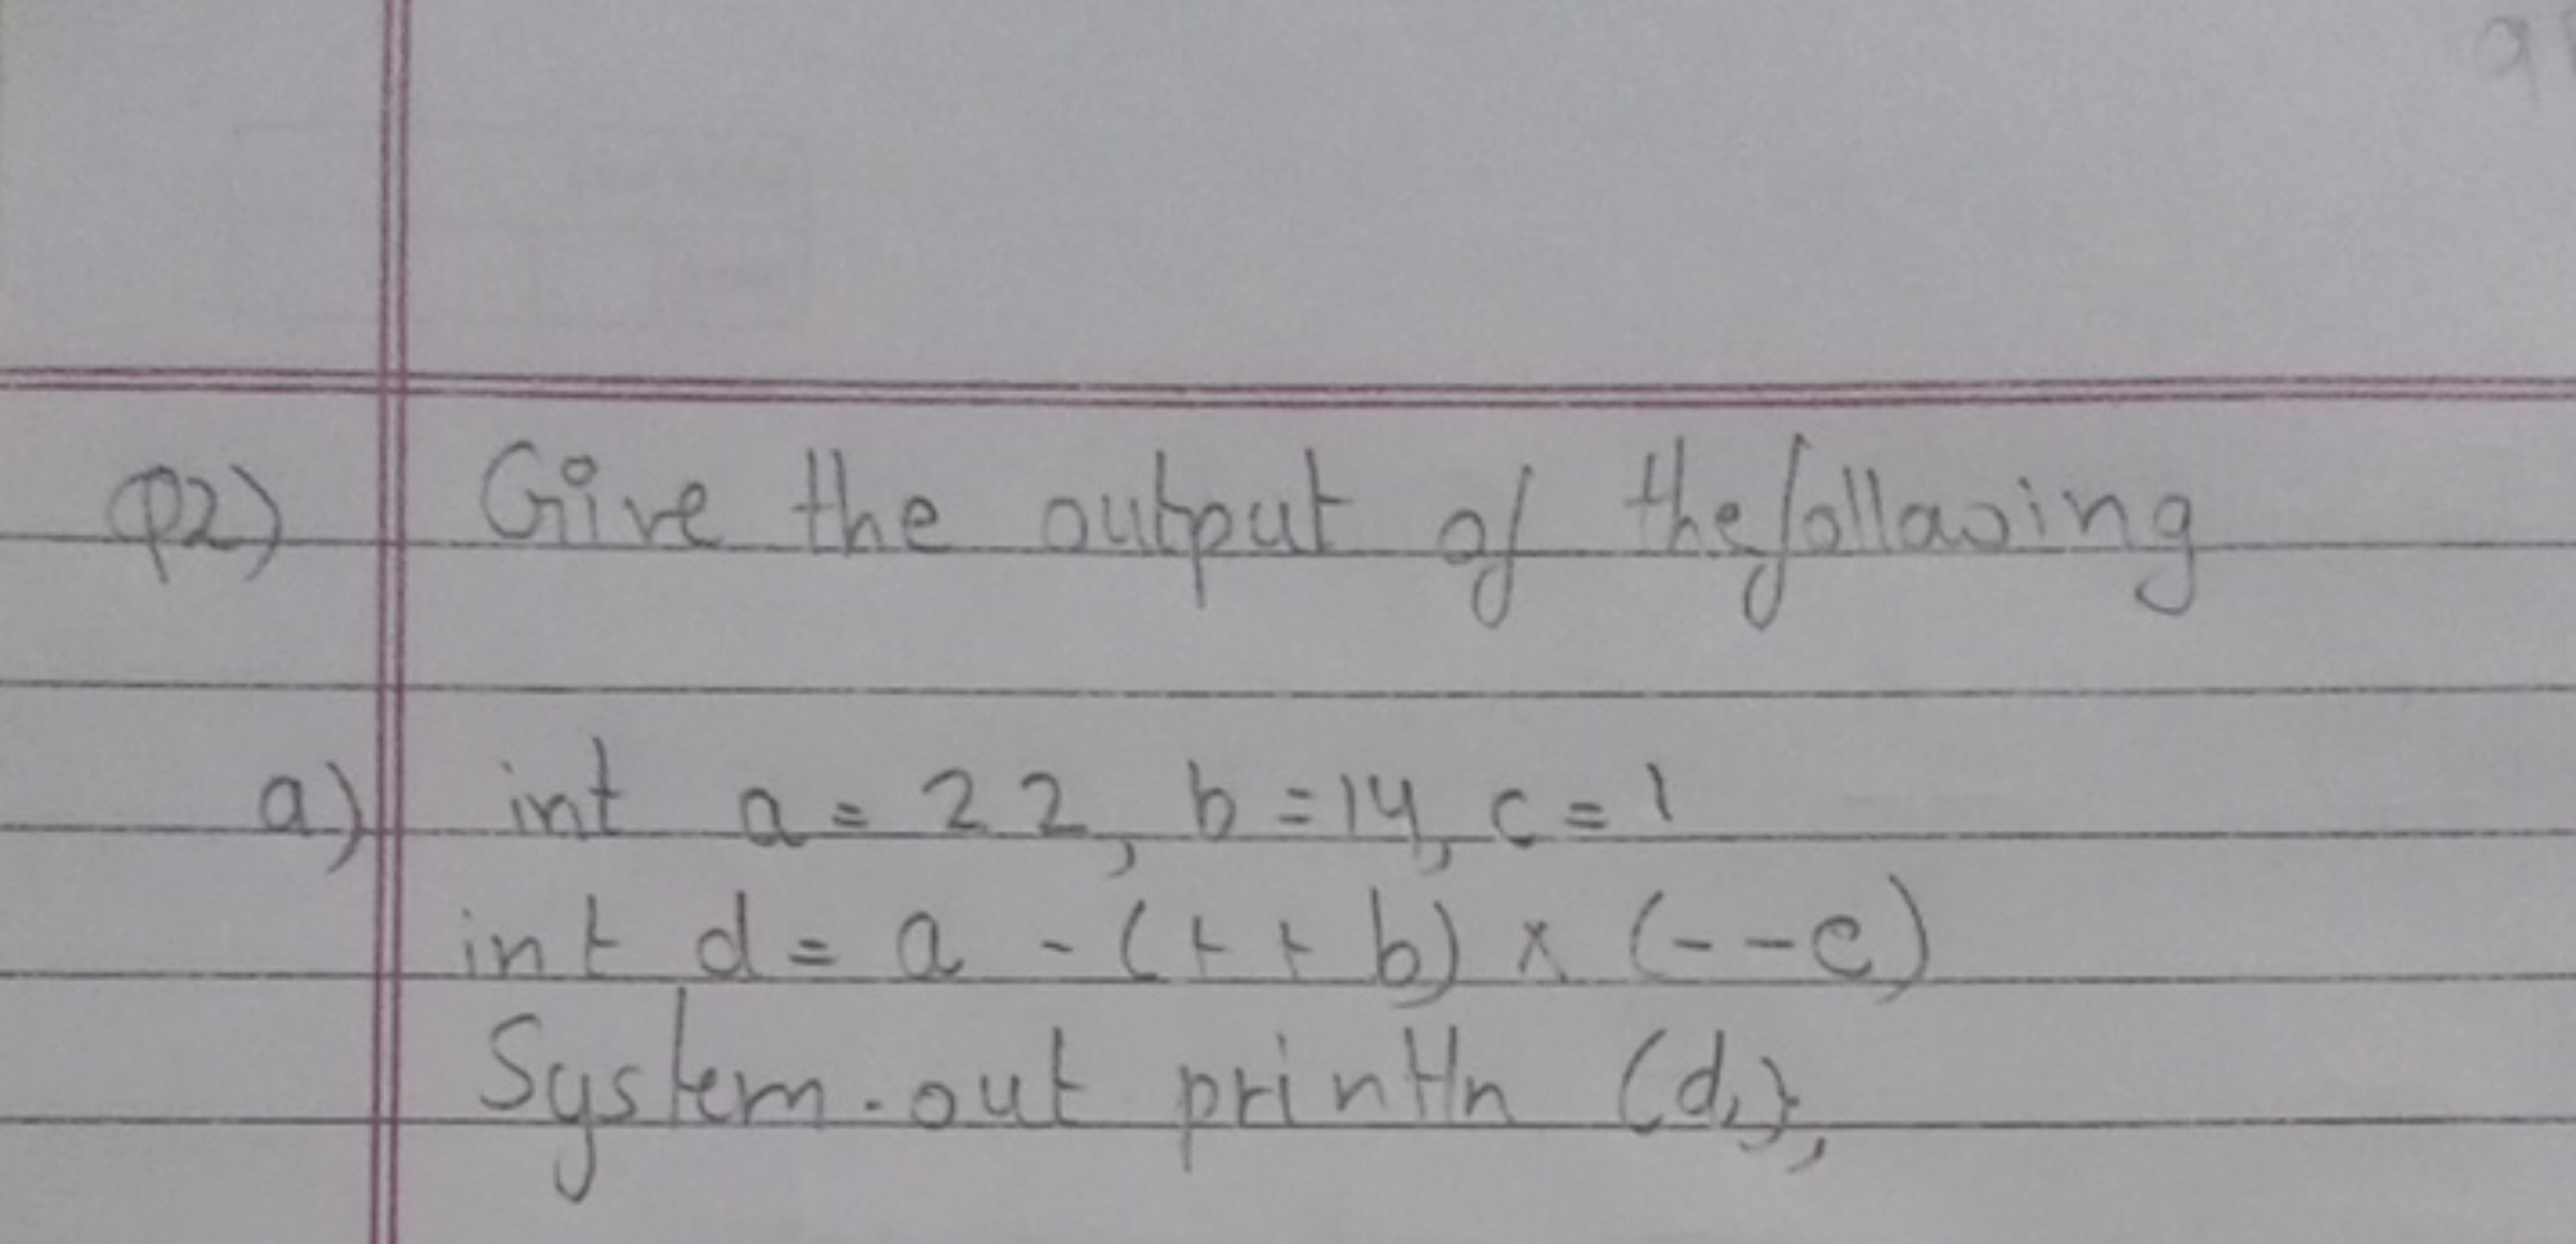 Q2) Give the output of the following
a) int a = 22, b = 14, c = 1
int d = a - (++b) x (--c)
System.out println (d,);